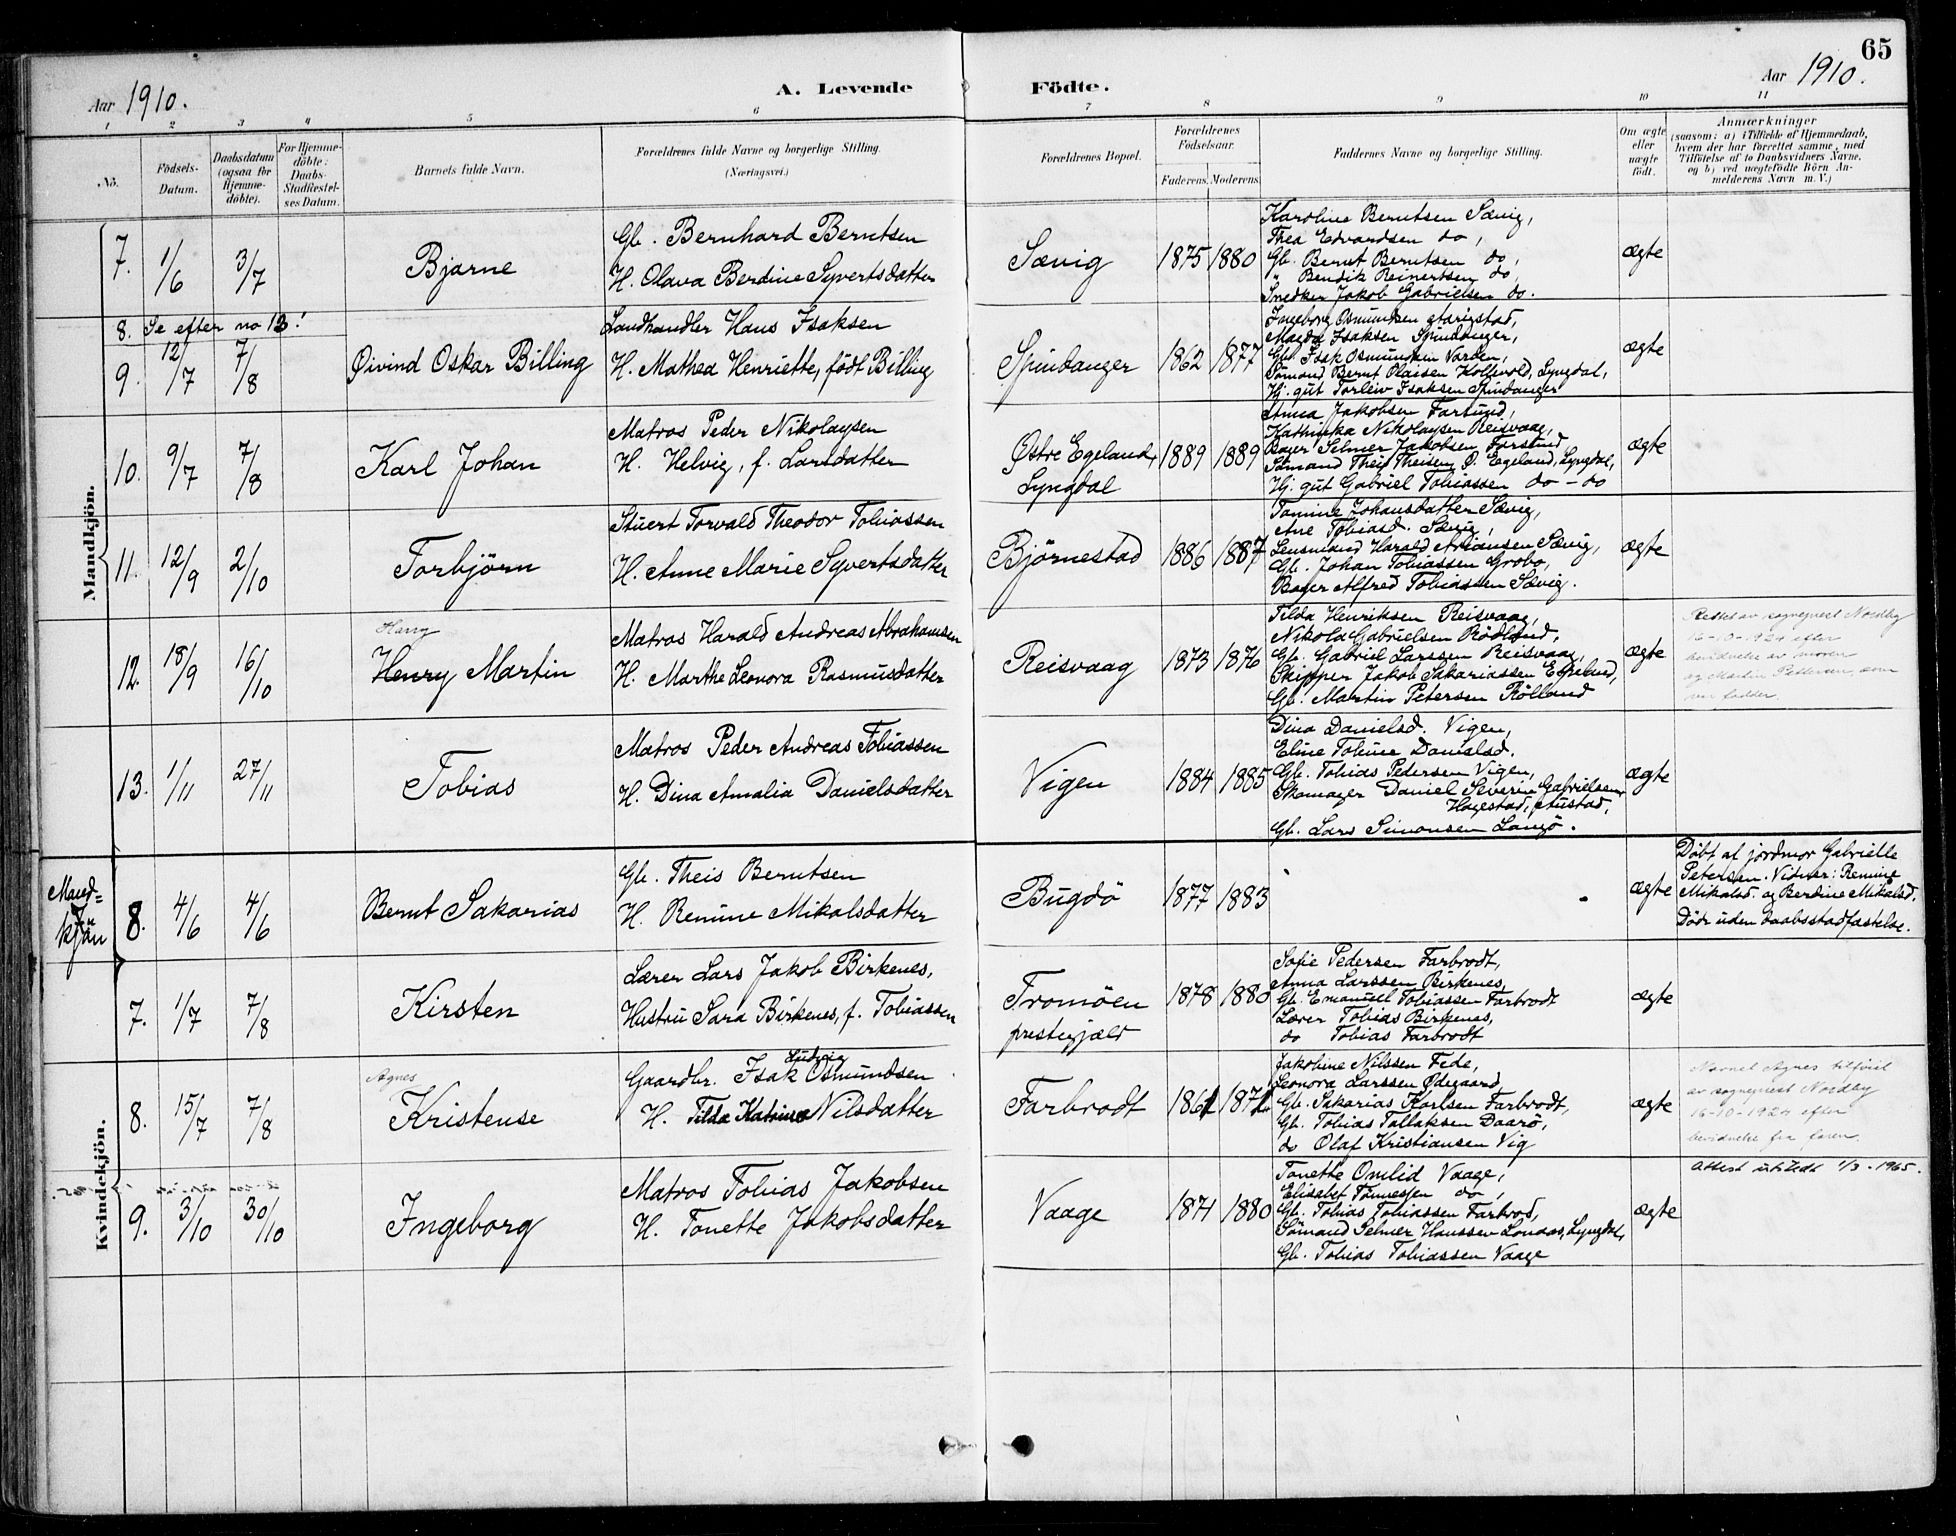 65
Aar 1910.
A. Levende
Födte.
Aar 1910.
1 2 3 4 5 6 7 8 9 10 11
No.
Födsels-
Datum.
Daabsdatum
(ogsaa for
Hjemme-
döbte).
For Hjemme-
döbte:
Daabs-
Stadfæstel-
ses Datum.
Barnets fulde Navn.
Forældrenes fulde Navne og borgerlige Stilling.
(Næringsvei.)
Forældrenes Bopæl.
Forældrenes
Födselsaar.
Faderens. Moderens.
Faddernes Navne og borgerlige Stilling.
Om ægte
eller
uægte
födt.
Anmærkninger
(saasom: a) i Tilfælde af Hjemmedaab,
hvem der har forrettet samme, med
Tilföielse af to Daabsvidners Navne,
og b) ved uægtefödte Börn An-
melderens Navn m. V.)
Mandkjön.
7. 1/6 3/7
Bjarne
Gb. Bernhard Berntsen
H. Olava Berdine Syvertsdatter
Sævig
1875 1880
Karoline Berntsen Sævig,
Thea Edvardsen do,
Gb. Bernt Berntsen do,
" Bendik Reinertsen do,
Snedker Jakob Gabrielsen do.
ægte
8. Se efter no 13!
9. 12/7 7/8
Øivind Oskar Billing
Landhandler Hans Isaksen
H. Mathea Henriette, født Billing
Spindanger
1862 1877
Ingeborg Osmundsen
Magda Isaksen Spindanger,
Gb. Isak Osmundsen Varden,
Sømand Bernt Olaisen Lyngdal,
Hj. gut Torleiv Isaksen Spindanger
ægte
10. 9/7 7/8
Karl Johan
Matros Peder Nikolaysen
H. Helvig, f. Larsdatter
Østre Egeland,
Lyngdal
1889 1889
Anna Jakobsen Farsund,
Kathinka Nikolaysen Reisvaag,
Bager Selmer Jakobsen Farsund
Sømand Theis Theisen Ø. Egeland, Lyngdal,
Hj. gut Gabriel Tobiassen do – do
ægte
11. 12/9 2/10
Torbjörn
Stuert Torvald Theodor Tobiassen
H. Anne Marie Syvertsdatter
Björnestad
1886 1887
Tomine Johansdatter Sævig,
Ane Tobiasd. Sævig,
Lensmand Harald Ariansen Sævig,
Gb. Johan Tobiassen Grobo,
Bager Alfred Tobiassen Sævig.
ægte
12. 18/9 16/10
Harry
Henry Martin
Matros Harald Andreas Abrahamsen
H. Marthe Leonora Rasmusdatter
Reisvaag
1873 1876
Tilda Henriksen Reisvaag,
Nikola Gabrielsen Rødland,
Gb. Gabriel Larssen Reisvaag,
Skipper Jakob Sakariassen Egeland,
Gb. Martin Petersen Rölland
ægte
Rettet av sogneprest Nordby
16-10-1924 efter
bevidnelse av moren
og Martin Pettersen som
var fadder
13. 1/11 27/11
Tobias
Matros Peder Andreas Tobiassen
H. Dina Amalia Danielsdatter
Vigen
1884 1885
Dina Danielsd. Vigen,
Eline Tobine Danielsd.
Gb. Tobias Pedersen Vigen,
Skomager Daniel Severin Gabrielsen
Hagestad, Austad,
Gb. Lars Simonsen Langö.
ægte
Mand-
kjön
8. 4/6 4/6
Bernt Sakarias
Gb. Theis Berntsen
H. Renine Mikalsdatter
Bugdö
1877 1883
ægte
Döbt af jordmor Gabrielle
Petersen. Vidner: Renine
Mikalsd. og Berdine Mikalsd.
Död uden daabsstadfæstelse.
Kvindekjön.
7. 1/7 7/8
Kirsten
Lærer Lars Jakob Birkenes,
Hustru Sara Birkenes, f. Tobiassen
Tromöen
prestegjæld
1878 1880
Sofie Pedersen Farbrodt,
Anna Larssen Birkenes,
Gb. Emanuel Tobiassen Farbrodt
Lærer Tobias Birkenes,
do Tobias Farbrodt
ægte
8. 15/7 7/8
Agnes
Kristense
Ludvig
Gaardbr. Isak Osmundsen
H. Tilda Katrine Nilsdatter
Farbrodt
1861 1871
Jakobine Nilssen Fede,
Leonora Larssen Ødegaard,
Gb. Sakarias Karlsen Farbrodt,
Gb. Tobias Tollaksen Daarö,
do Olaf Kristiansen Vig
ægte
Navnet Agnes tilføiet
av sogneprest Nordby
16-10-1924 efter
bevidnelse fra faren.
9. 3/10 30/10
Ingeborg
Matros Tobias Jakobsen
H. Tonette Jakobsdatter
Vaage
1871 1880
Tonette Omlid Vaage,
Elisabet Tønnessen do,
Gb. Tobias Tobiassen Farbrod,
Sömand Selmer Hanssen Lonaas, Lyngdal,
Gb. Tobias Tobiassen Vaage
ægte
Attest utstedt 1/3 - 1965.